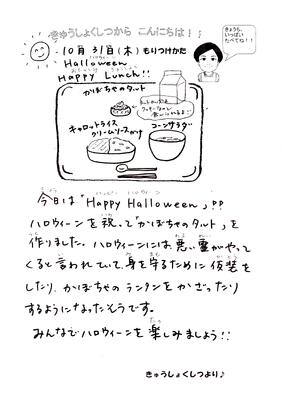 きゅうしょくしつから こんにちは!!
10月31日(木) もりつけかた
Halloween
Happy Lunch!!
きょうも、
いっぱい
たべてね!!
かぼちゃのタルト
キャロットライス
クリームソースかけ
コーンサラダ
今日は「Happy Halloween」!!
ハロウィーンを祝って「かぼちゃのタルト」を
作りました。ハロウィーンには悪い霊がやって
くると言われていて、身を守るために仮装を
したり、かぼちゃのランタンをかざったり
するようになったそうです。
みんなでハロウィーンを楽しみましょう!!
きゅうしょくしつより♪